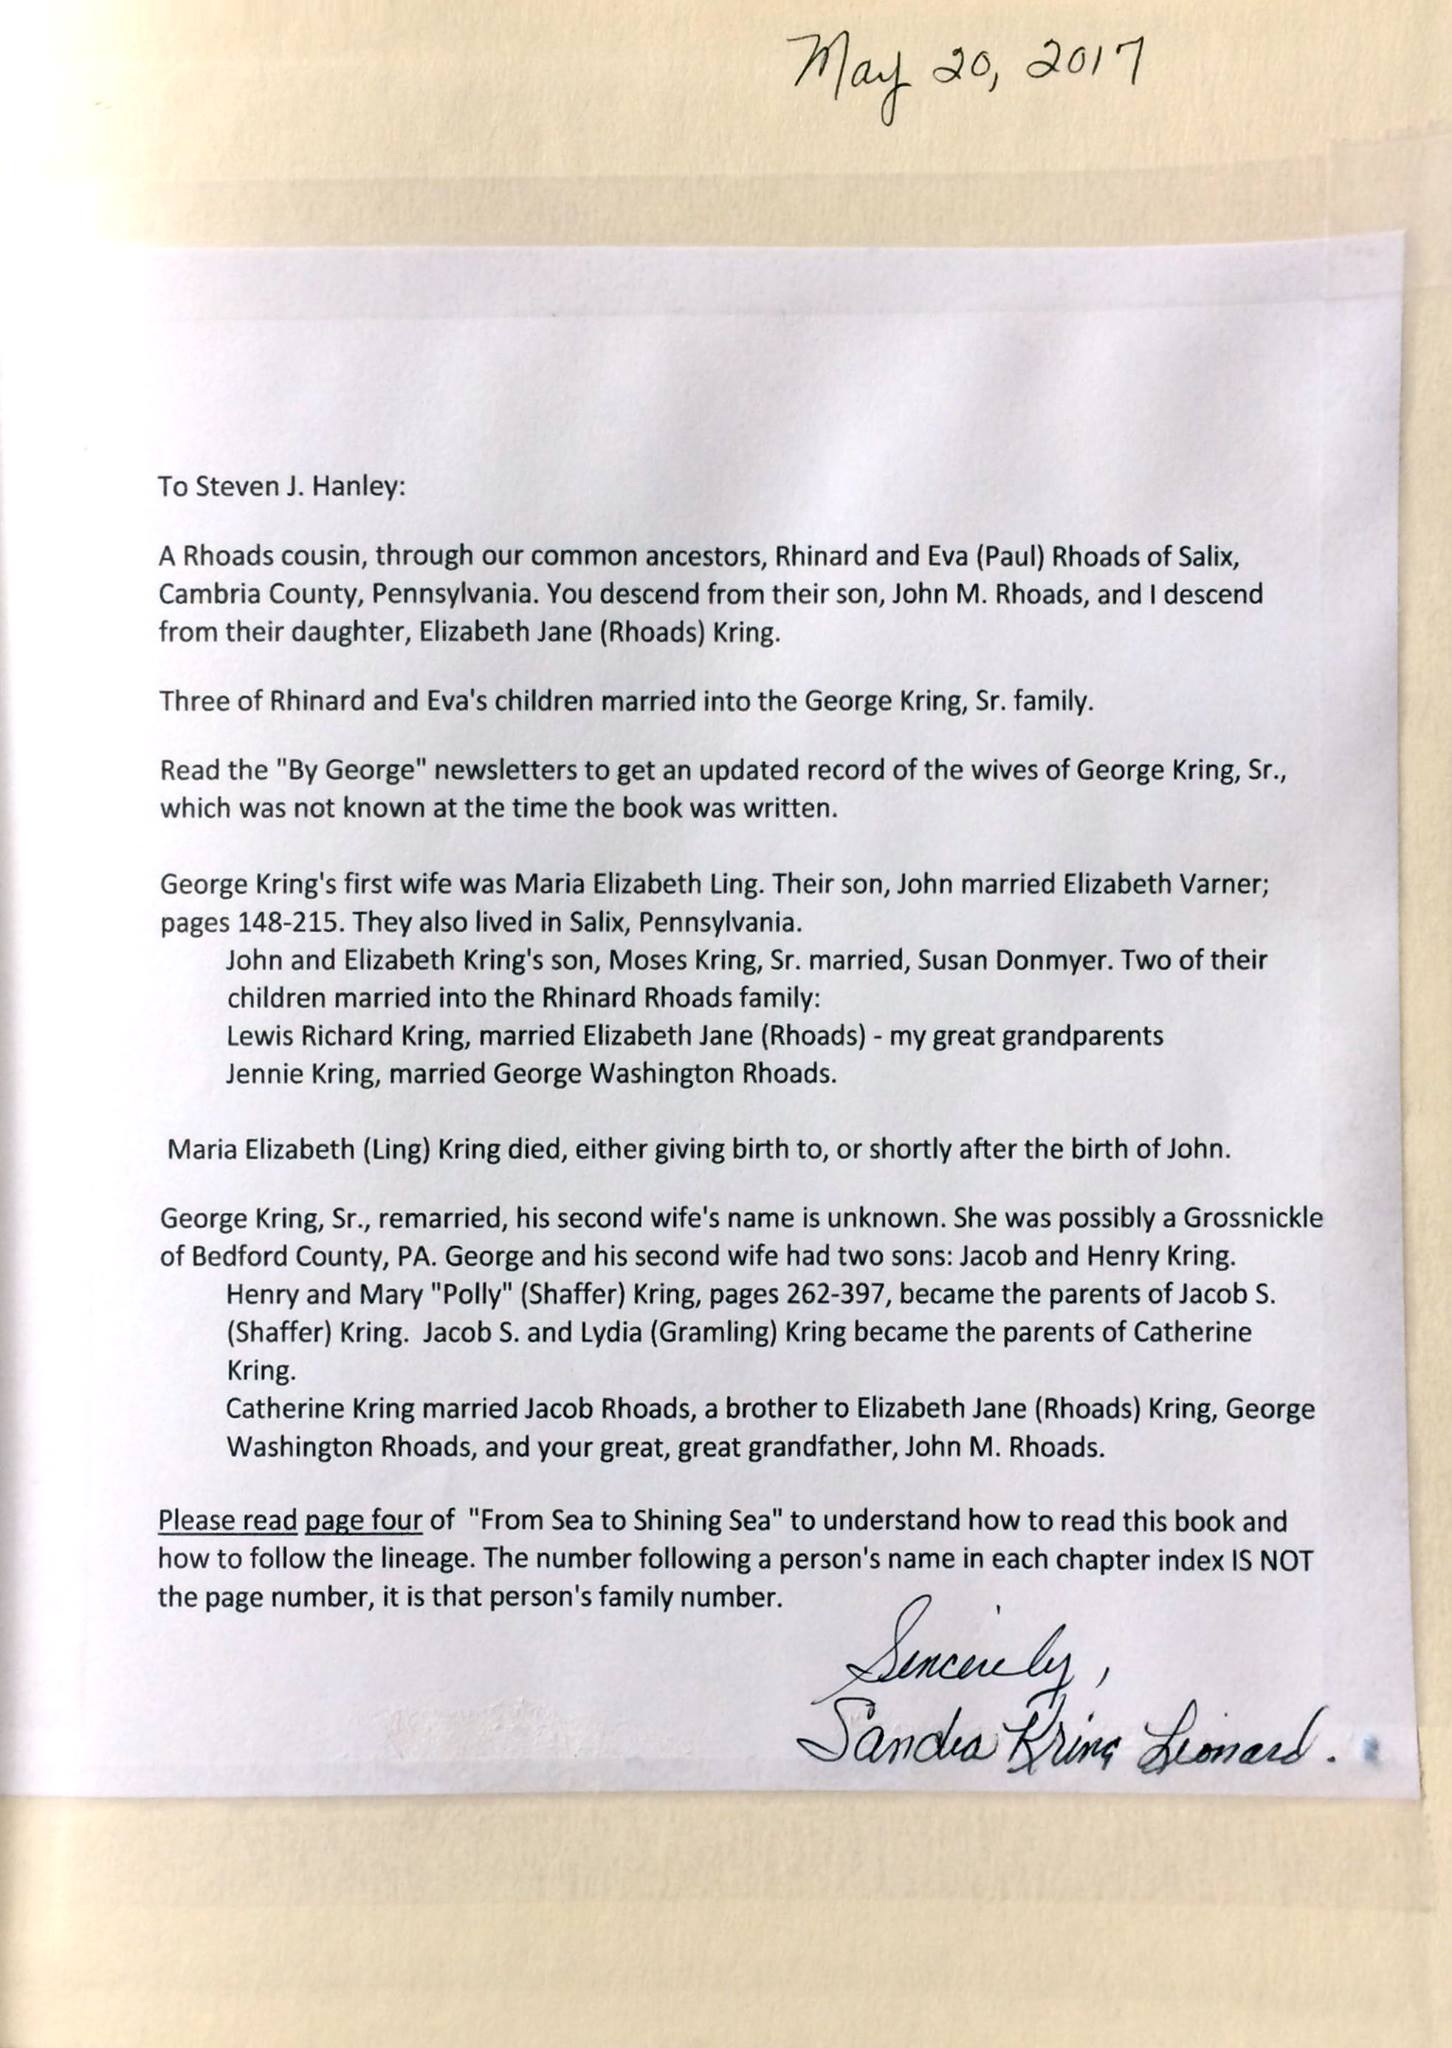 May 20, 2017
To Steven J. Hanley:
A Rhoads cousin, through our common ancestors, Rhinard and Eva (Paul) Rhoads of Salix,
Cambria County, Pennsylvania. You descend from their son, John M. Rhoads, and I descend
from their daughter, Elizabeth Jane (Rhoads) Kring.
Three of Rhinard and Eva's children married into the George Kring, Sr. family.
Read the "By George" newsletters to get an updated record of the wives of George Kring, Sr.,
which was not known at the time the book was written.
George Kring's first wife was Maria Elizabeth Ling. Their son, John married Elizabeth Varner;
pages 148-215. They also lived in Salix, Pennsylvania.
John and Elizabeth Kring's son, Moses Kring, Sr. married, Susan Donmyer. Two of their
children married into the Rhinard Rhoads family:
Lewis Richard Kring, married Elizabeth Jane (Rhoads) - my great grandparents
Jennie Kring, married George Washington Rhoads.
Maria Elizabeth (Ling) Kring died, either giving birth to, or shortly after the birth of John.
George Kring, Sr., remarried, his second wife's name is unknown. She was possibly a Grossnickle
of Bedford County, PA. George and his second wife had two sons: Jacob and Henry Kring.
Henry and Mary "Polly" (Shaffer) Kring, pages 262-397, became the parents of Jacob S.
(Shaffer) Kring. Jacob S. and Lydia (Gramling) Kring became the parents of Catherine
Kring.
Catherine Kring married Jacob Rhoads, a brother to Elizabeth Jane (Rhoads) Kring, George
Washington Rhoads, and your great, great grandfather, John M. Rhoads.
Please read page four of "From Sea to Shining Sea" to understand how to read this book and
how to follow the lineage. The number following a person's name in each chapter index IS NOT
the page number, it is that person's family number.
Sincerely,
Sandra Kring Leonard.